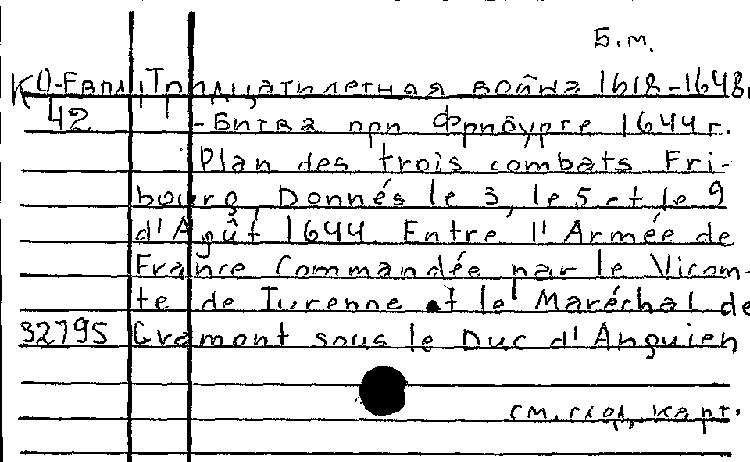 Б.м.
К 0-Евпл, Тридцатилетная война 1618-1648.
42 - Битва при Фрибурге 1644 г.
Plan des trois combats Fri-
bourg, Donnés le 3, le 5 et le 9
d'Août 1644 Entre l'Armée de
France Commandée par le Vicom-
te de Turenne et le Maréchal de
32795 Gramont sous le Duc d'Anguien
см. след. карт.